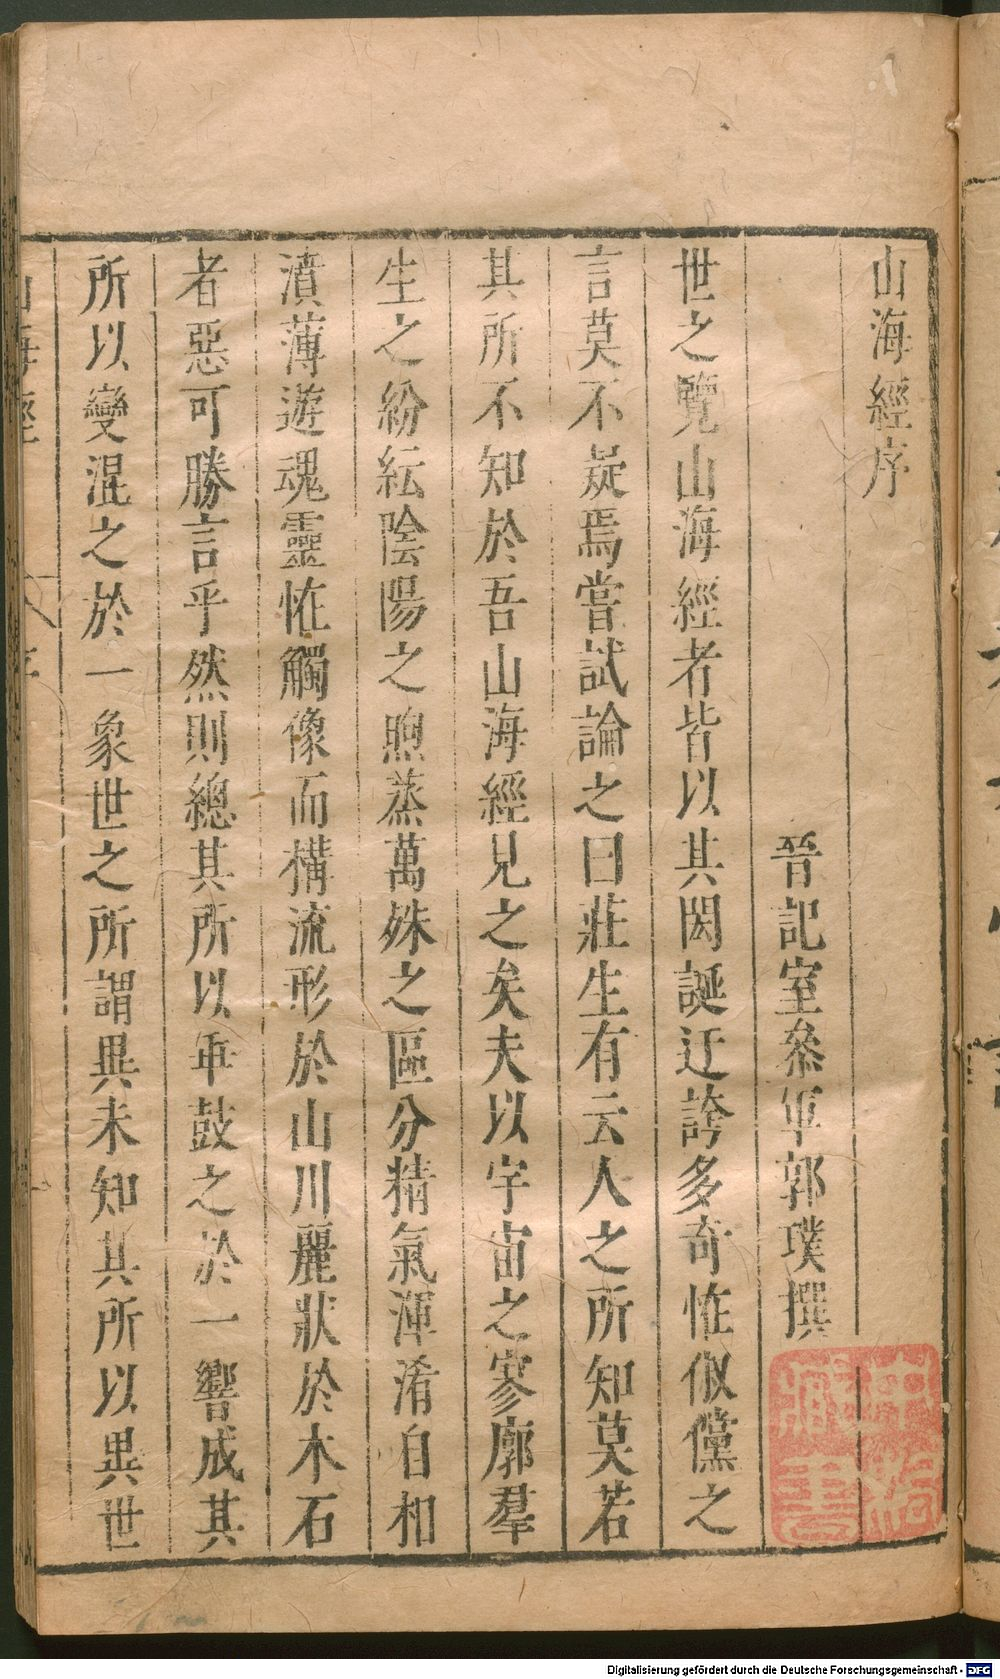 山海經序
晉記室叅軍郭璞撰
世之覽山海經者皆以其閎誕迂誇多奇恠俶儻之
言莫不㠜焉嘗試論之曰莊生有云人之所知莫若
其所不知於吾山海經見之矣夫以宇宙之寥廓羣
生之紛紜陰陽之煦蒸萬殊之區分精氣渾淆自相
濆薄遊魂靈恠觸像而構流形於山川麗狀於木石
者惡可勝言乎然則總其所以乖鼓之於一響成其
所以變混之於一象世之所謂異未知其所以異世
山海經
序
Digitalisierung gefördert durch die Deutsche Forschungsgemeinschaft - DFG